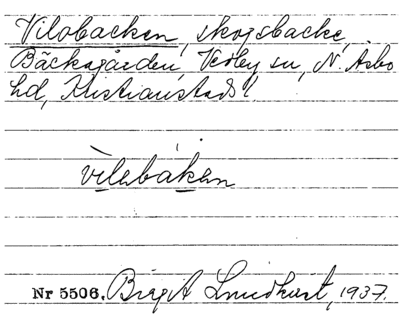 Vilobacken, skogsbacke,
Bäckagården, Vedby sn, N. Åsbo
hd, Kristianstads l
vìlebákan
Nr 5506. Birgit Lundkvist, 1937.